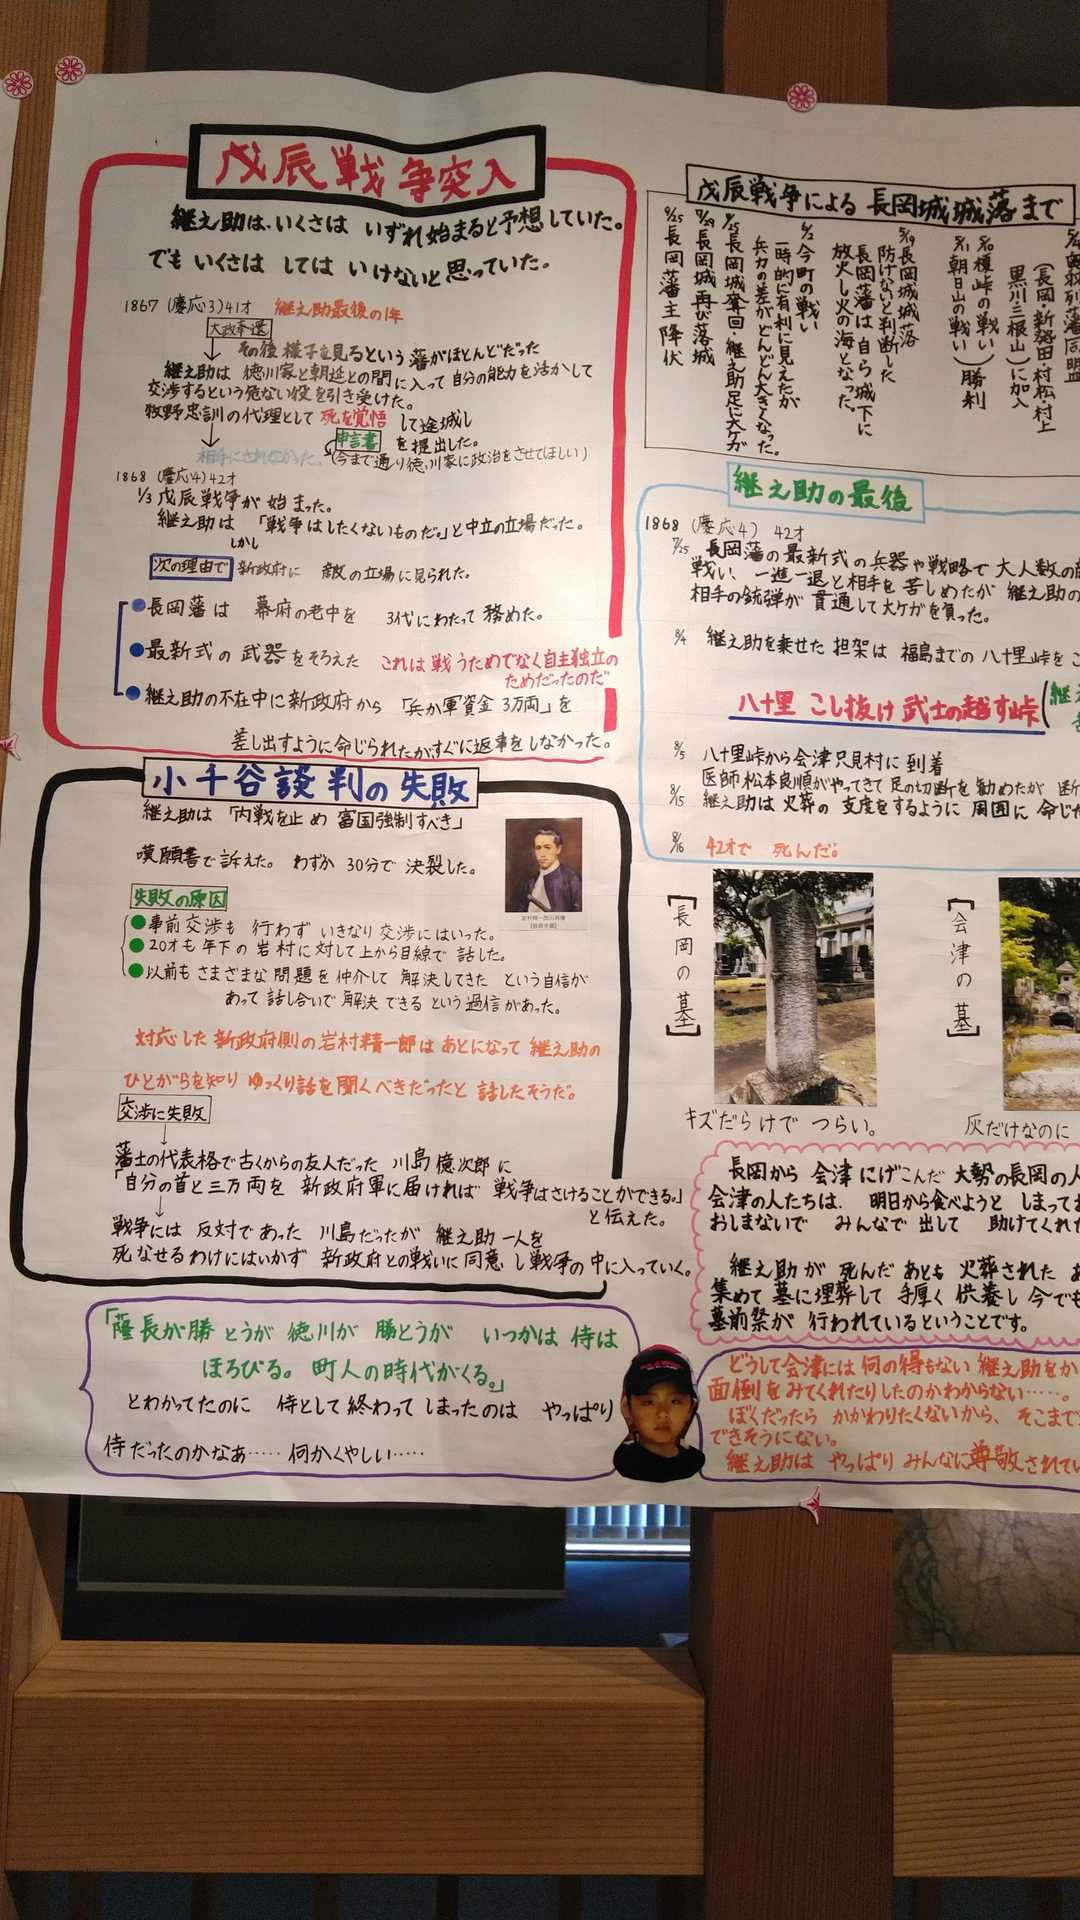 戊辰戦争突入
継之助は、いくさは いずれ始まると予想していた。
でも いくさは しては いけないと思っていた。
1867 (慶応3)41才 継之助最後の1年
大政奉還
その後 様子を見るという 藩がほとんどだった
継之助は 徳川家と朝廷との間に入って自分の能力を活かして
交渉するという危ない役を引き受けた。
牧野忠訓の代理として 死を覚悟 して 登城し
申言書 を提出した。
相手にされなかった。 (今まで通り徳川家に政治をさせてほしい)
1868 (慶応4)42才
1/3 戊辰戦争が 始まった。
継之助は 「戦争はしたくないものだ。」と中立の立場だった。
しかし
次の理由で 新政府に 敵の立場に見られた。
長岡藩は 幕府の老中を 3代にわたって 務めた。
最新式の 武器をそろえた これは戦うためでなく自主独立の
ためだったのだ
継之助の不在中に新政府から 「兵か軍資金 3万両」を
差し出すように命じられたがすぐに返事をしなかった。
小千谷談判の失敗
継之助は 「内戦を止め 富国強制すべき」
嘆願書で訴えた。 わずか 30分で 決裂した。
失敗の原因
事前交渉も 行わず いきなり 交渉にはいった。
20才も年下の 岩村に対して上から目線で 話した。
以前も さまざまな 問題を 仲介して 解決してきた という自信が
あって 話し合いで 解決 できる という 過信があった。
対応した 新政府側の岩村精一郎は あとになって 継之助の
ひとがらを知り ゆっくり話を聞くべきだったと 話したそうだ。
交渉に失敗
藩士の代表格で古くからの友人だった 川島億次郎に
「自分の首と三万両を 新政府軍に届ければ 戦争はさけることができる。」
と伝えた。
戦争には 反対であった 川島だったが 継之助一人を
死なせるわけにはいかず 新政府との戦いに同意し戦争の中に入っていく。
「薩長が勝とうが 徳川が 勝とうが いつかは 侍は
ほろびる。 町人の時代がくる。」
とわかってたのに 侍として終わって しまったのは やっぱり
侍だったのかなぁ…… 何かくやしい……
戊辰戦争による 長岡城城落まで
(長岡・新発田・村松・村上
黒川・三根山)に加入
5/10 榎峠の戦い)勝利
5/11 朝日山の戦い
5/19 長岡城城落
防げないと判断した
長岡藩は自ら城下に
放火し火の海となった。
6/2 今町の戦い
一時的に有利に見えたが
兵力の差がどんどん大きくなった。
7/25 長岡城奪回・継之助足に大ケガ
7/29 長岡城再び落城
9/25 長岡藩主降伏
継之助の最後
1868 (慶応4) 42才
7/25 長岡藩の最新式の兵器や戦略で大人数の
戦い、一進一退と相手を苦しめたが 継之助の
相手の銃弾が 貫通して大ケガを負った。
8/4 継之助を乗せた 担架は 福島までの 八十里峠を こ
八十里 こし抜け 武士の越す峠
8/5 八十里峠から会津只見村に 到着
医師松本良順がやってきて 足の切断を 勧めたが 断
8/15 継之助は 火葬の 支度をするように 周囲に 命じ
8/16 42才で 死んだ。
[長岡の墓]
[会津の墓]
キズだらけで つらい。
灰だけなのに
長岡から 会津 にげこんだ 大勢の長岡の人
会津の人たちは、明日から食べようと しまって
おしまないで みんなで 出して 助けてくれた
継之助が 死んだ あとも 火葬された
集めて 墓に埋葬して 手厚く 供養し 今でも
墓前祭が 行われているということです。
どうして会津には 何の得もない 継之助をか
面倒をみてくれたりしたのかわからない……。
ぼくだったら かかわりたくないから、そこまで
できそうにない。
継之助は やっぱり みんなに尊敬されてい